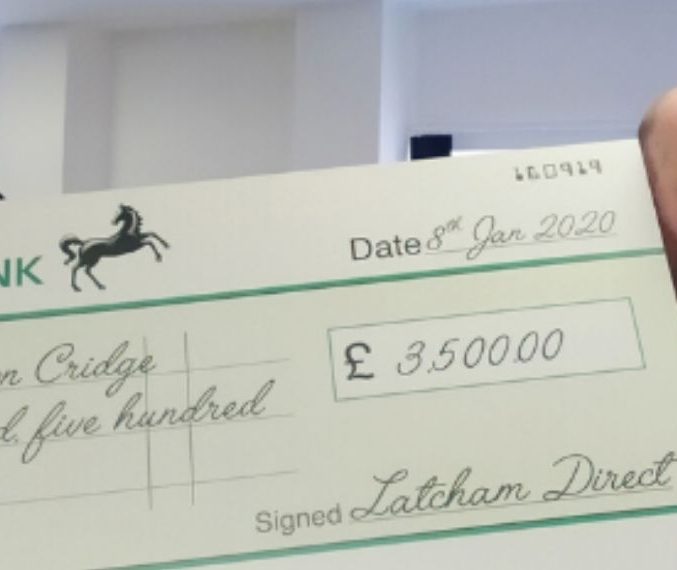 160919
NK
Date 8th Jan 2020
n Cridge
£ 3,500.00
d, five hundred
Signed Latcham Direct